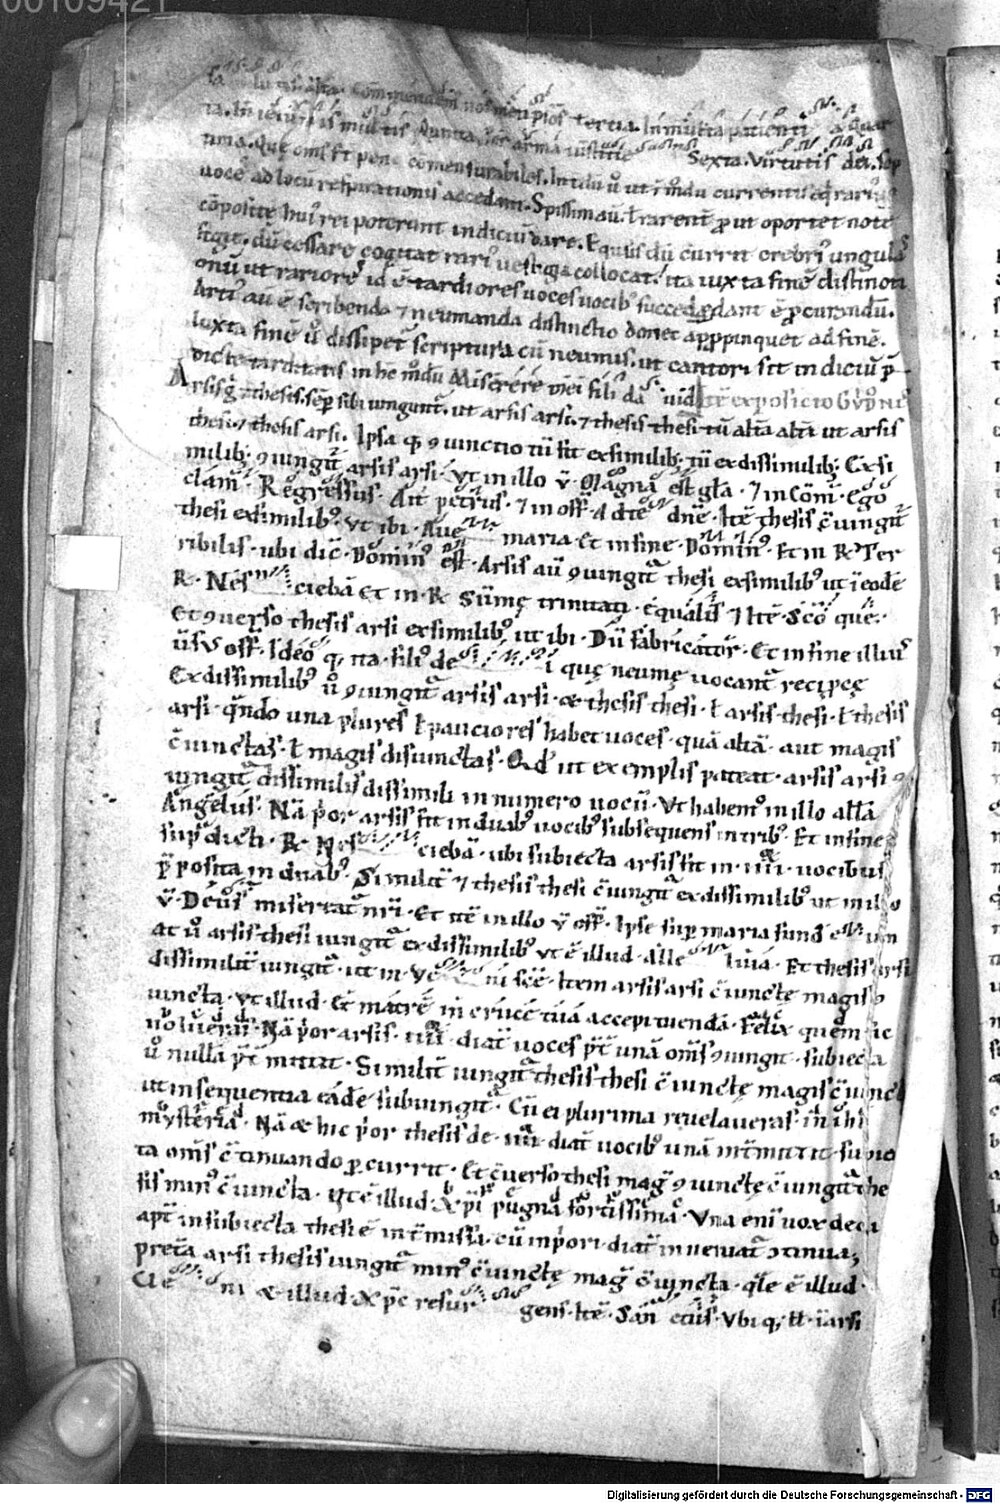 00109421
ta. In ieiuniis multis. Quinta. per arma iustitie Sexta. Virtutis dei. Sep
tima. Quę om̄s ſt pene comenſurabiles. In tdū ū ut ī mdū currentis eq̄ rarius
uocē ad locū reſpirationis accedant. Spiſſim aū ł rarent̄ ꝓut oportet note
cōpoſitę huiꝰ rei poterunt indiciū dare. Equus dū currit crebriꝰ ungulas
figit. dū ceſſare cogitat rariꝰ ueſtigia collocat. ita iuxta finē diſtincti
onū ut rariorē id ē tardiores uoces uocibꝰ ſuccedant ē ꝓcurandū.
Artiꝰ aū ē ſcribenda ⁊ neumanda diſtinctio donec appropinquet ad finē.
Iuxta finē ū diſſipet̄ ſcriptura cū neumis. ut cantori ſit indiciū p̄
dicte tarditatis in hc mdū Miſerere mei fili dauid
Arſis ḡ ⁊ theſis. ſep̄ ſibi iungunt̄. ut arſis arſi. ⁊ theſis theſi tū altā altā ut arſis
theſi. ⁊ theſis arſi. Ipſa q̨ ꝯiunctio tū fit exſimilibꝫ. tū exdiſſimilibꝫ. Exſi
milibꝫ ꝯiungit̄ arſis arſi. Vt in illo v̄ Magna eſt gła. ⁊ in Cōm̄. Ego
clam̄. Regreſſus. Ait petrus. ⁊ in off. Ad te dn̄e. Itē theſis c̄iungit̄
theſi exſimilibꝰ. Vt ibi. Aue maria Et in fine. Dominꝰ. Et in ℞ Ter
ribilis. ubi dic̄. Dominꝰ eſt. Arſis aū ꝯiungit̄ theſi exſimilibꝰ ut ī eodē
℞. Neſ ciebā Et in ℞ Sūmę trinitati. ęqualis ⁊ Itē. Sc̄o que.
Et ꝯuerſo theſis arſi exſimilibꝰ ut ibi. Dū fabricator. Et in fine illiuſ
Ideo q; ita. filiꝰ de i quę neumę uocant̄ recipeę
Exdiſſimilibꝰ ū ꝯiungit̄ arſis arſi. & theſis theſi. ł arſis theſi. ł theſis
arſi. q̄ndo una plures ł pauciores habet uoces. quā aliā. aut magis
c̄iunctas. ł magis diſiunctas. Qd ut exemplis pateat. arſis arſi
iungit̄ diſſimilis diſſimili in numero uocū. Vt habemꝰ in illo ałła
Angelus. Nā p̄or arſis fit in duabꝰ uocibꝰ ſubſequens in tribꝰ. Et in fine
ſupͣ dicti. ℞. Neſ ciebā. ubi ſubiecta arſis fit in. iiii. uocibus
p̄poſita in duabꝰ. Similit̄ ⁊ theſis theſi c̄iungit̄ exdiſſimilibꝰ ut in illo
v̄. Deus miſereat̄ nr̄i. Et itē in illo v̄ off. Ipſe ſup̄ maria fund e um
At ū arſis theſi iungit̄ exdiſſimilibꝰ Vt ē illud. alle luia. Et theſis arſi
diſſimilit̄ iungit̄. ut in Ve ni ſc̄e. Item arſis arſi c̄iunctę magis ꝯ
iuncta. Vt illud. Et matrē in cruce tuā accepi tuendā. Felix quem ſic
uoluerat. Nā p̄or arſis. iiii. diat̄ uoces p̄t unā om̄s ꝯiungit. ſubiecta
ū nullā p̄t mittit. Similit̄ iungit̄ theſis theſi c̄iunctę magis c̄iuncta
ut in ſequentia eadē ſubiungit̄. Cū ei plurima reuelaueras. in ihu
myſteria. Nā & hic p̄or theſis de. iiii. diat̄ uocibꝰ unā int̄mittit. ſubiec
ta om̄s c̄tinuando ꝑcurrit. Et c̄uerſo theſi mag̊ ꝯiunctę c̄iungit̄ the
ſis minꝰ c̄iuncta. Vt ē illud. Xp̄i pugna fortiſſima. Vna eni uox deci
apt̄ in ſubiecta theſi ē int̄miſſa. cū in p̄ori. diat̄ inueniat̄ ꝯtinua;
pret̄a arſi theſis iungit̄ minꝰ c̄iunctę mag̊ c̄iuncta. qle ē illud.
Cle ni & illud. Xp̄c reſur gens. Itē. San ctus. Vbi q; ił. ī arſi
Digitalisierung gefördert durch die Deutsche Forschungsgemeinschaft - DFG